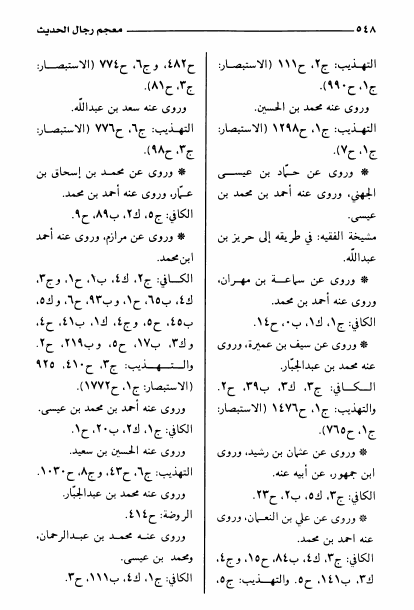 ٥٤٨ معجم رجال الحديث
التهذيب: ج٢، ح١١١ (الاستبصار:
ج١، ح٩٩٠).
وروى عنه محمد بن الحسين.
التهذيب: ج١، ح١٢٩٨ (الاستبصار:
ج١، ح٧).
* وروى عن حمّاد بن عيسى
الجهني، وروى عنه أحمد بن محمد بن
عيسى.
مشيخة الفقيه: في طريقه إلى حريز بن
عبدالله.
* وروى عن سماعة بن مهران،
وروى عنه أحمد بن محمد.
الكافي: ج١، ك١، ب٠، ح١٤.
* وروى عن سيف بن عميرة، وروى
عنه محمد بن عبدالجبّار.
الكافي: ج٣، ك٣، ب٣٩، ح٢.
والتهذيب: ج١، ح١٤٧٦ (الاستبصار:
ج١، ح٧٦٥).
* وروى عن عثمان بن رشيد، وروى
ابن جمهور، عن أبيه عنه.
الكافي: ج٣، ك٥، ب٢، ح٢٣.
* وروى عن علي بن النعمان، وروى
عنه احمد بن محمد.
الكافي: ج٣، ك٤، ب٨٤، ح١٥، وج٤،
ك٣، ب١٤١، ح٥. والتهذيب: ج٥،
ح٤٨٢، وج٦، ح٧٧٤ (الاستبصار:
ج٣، ح٨١).
وروى عنه سعد بن عبدالله.
التهذيب: ج٦، ح٧٧٦ (الاستبصار:
ج٣، ح٩٨).
* وروى عن محمد بن إسحاق بن
عمار، وروى عنه أحمد بن محمد.
الكافي: ج٥، ك٢، ب٨٩، ح٩.
* وروى عن مرازم، وروى عنه أحمد
ابن محمد.
الكافي: ج٢، ك٤، ب١، ح١، وج٣،
ك٤، ب٦٥، ح١، وب٩٣، ح٦، وك٥،
ب٤٥، ح٥، وج٤، ك١، ب٤١، ح٤،
وك٣، ب١٧، ح٥، وب٢١٩، ح٢.
والتهذيب: ج٣، ح٤١٠، ٩٢٥
(الاستبصار: ج١، ح١٧٧٢).
وروى عنه أحمد بن محمد بن عيسى.
الكافي: ج١، ك٢، ب٢٠، ح١.
وروى عنه الحسين بن سعيد.
التهذيب: ج٦، ح٤٣، وج٨، ح١٠٣٠.
وروى عنه محمد بن عبدالجبّار.
الروضة: ح٤١٤.
وروى عنه محمد بن عبدالرحمان،
ومحمد بن عيسى.
الكافي: ج١، ك٤، ب١١١، ح٣.